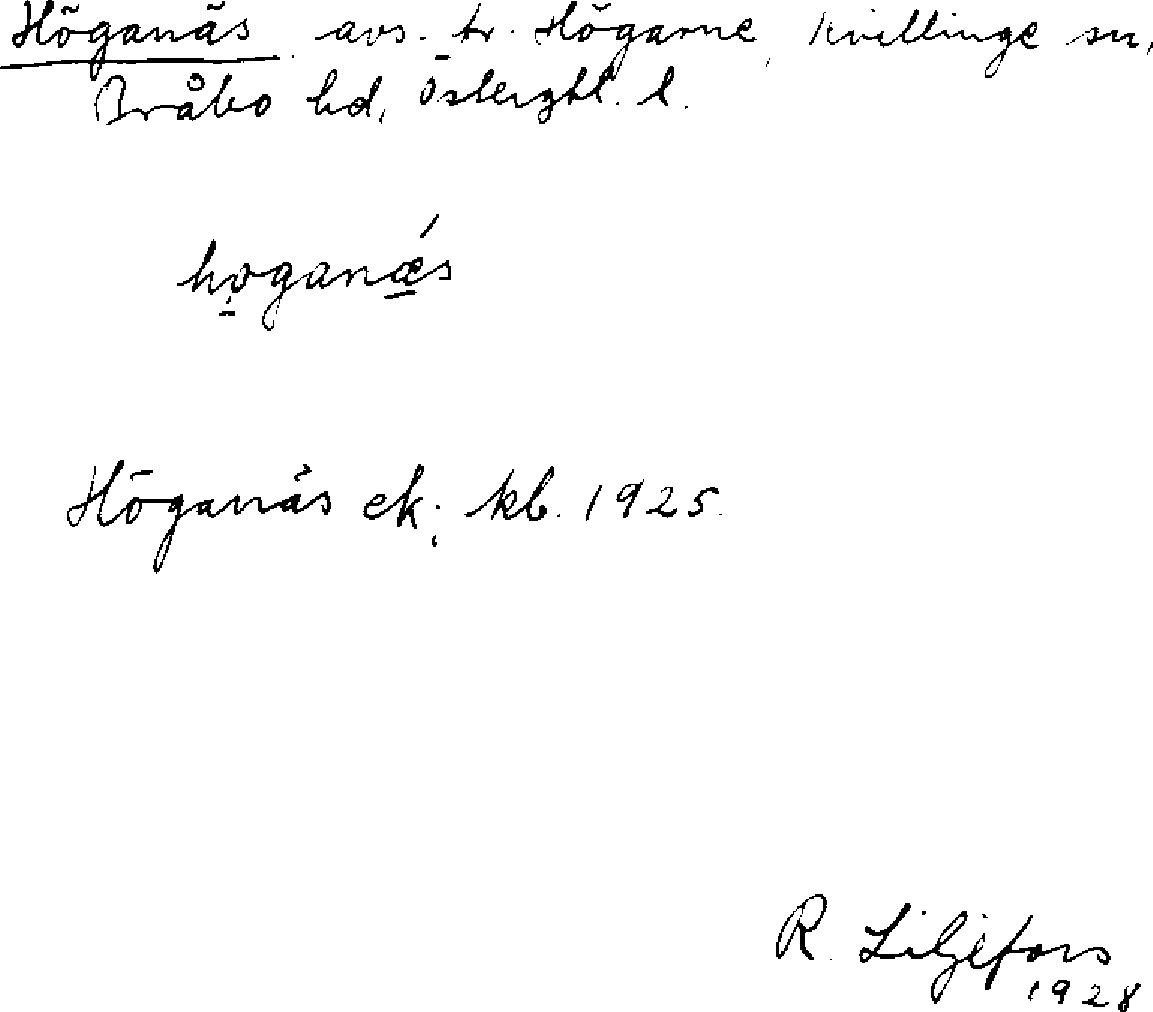 Höganäs avs. fr. Högarne, Kvillinge sn,
Bråbo hd, Östergtl. l.
hoganæ´s
Höganäs ek. kb. 1925.
R. Liljefors
1928